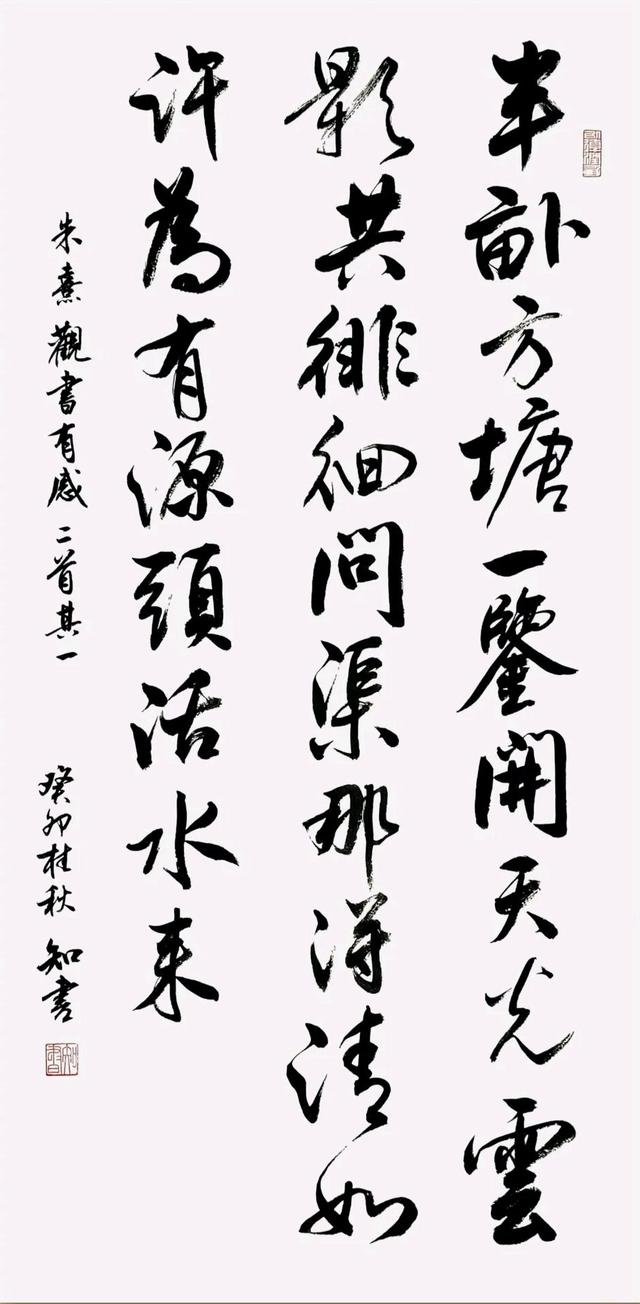 半畝方塘一鑒開天光雲
影共徘徊問渠那得清如
許為有源頭活水來
朱熹觀書有感二首其一
癸卯桂秋知書